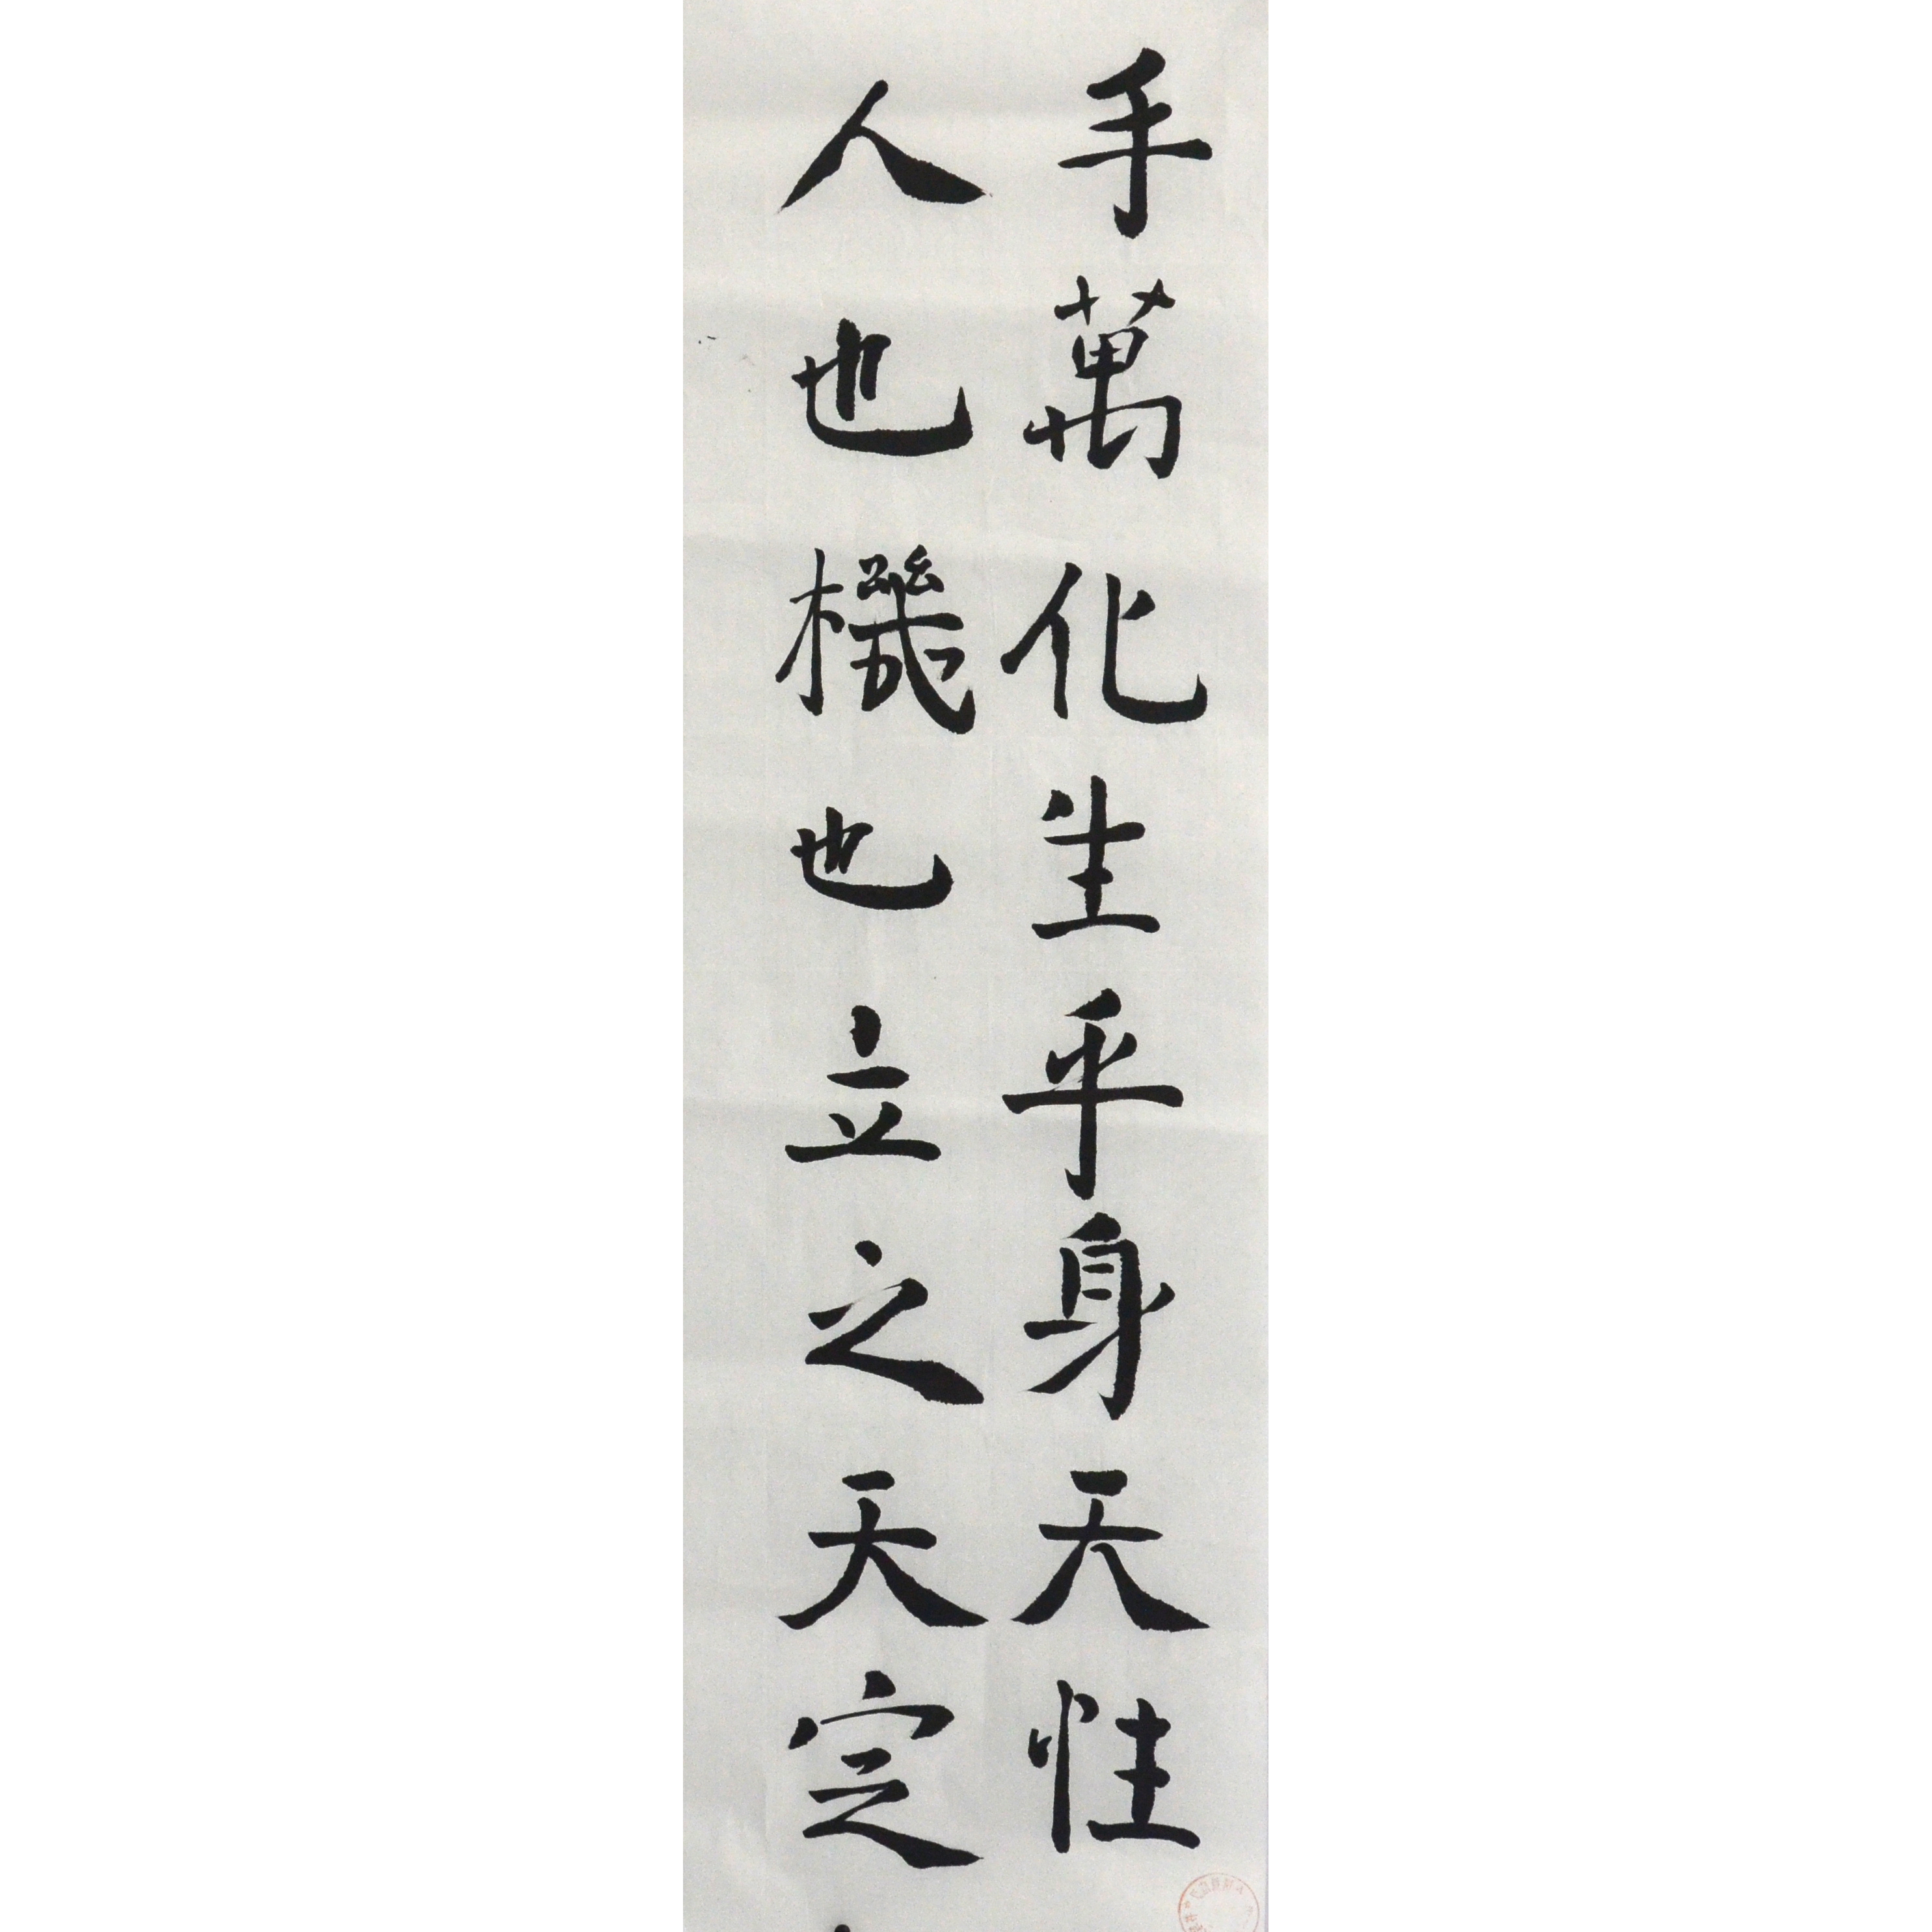 手萬化生乎身天性
人也機也立之天定